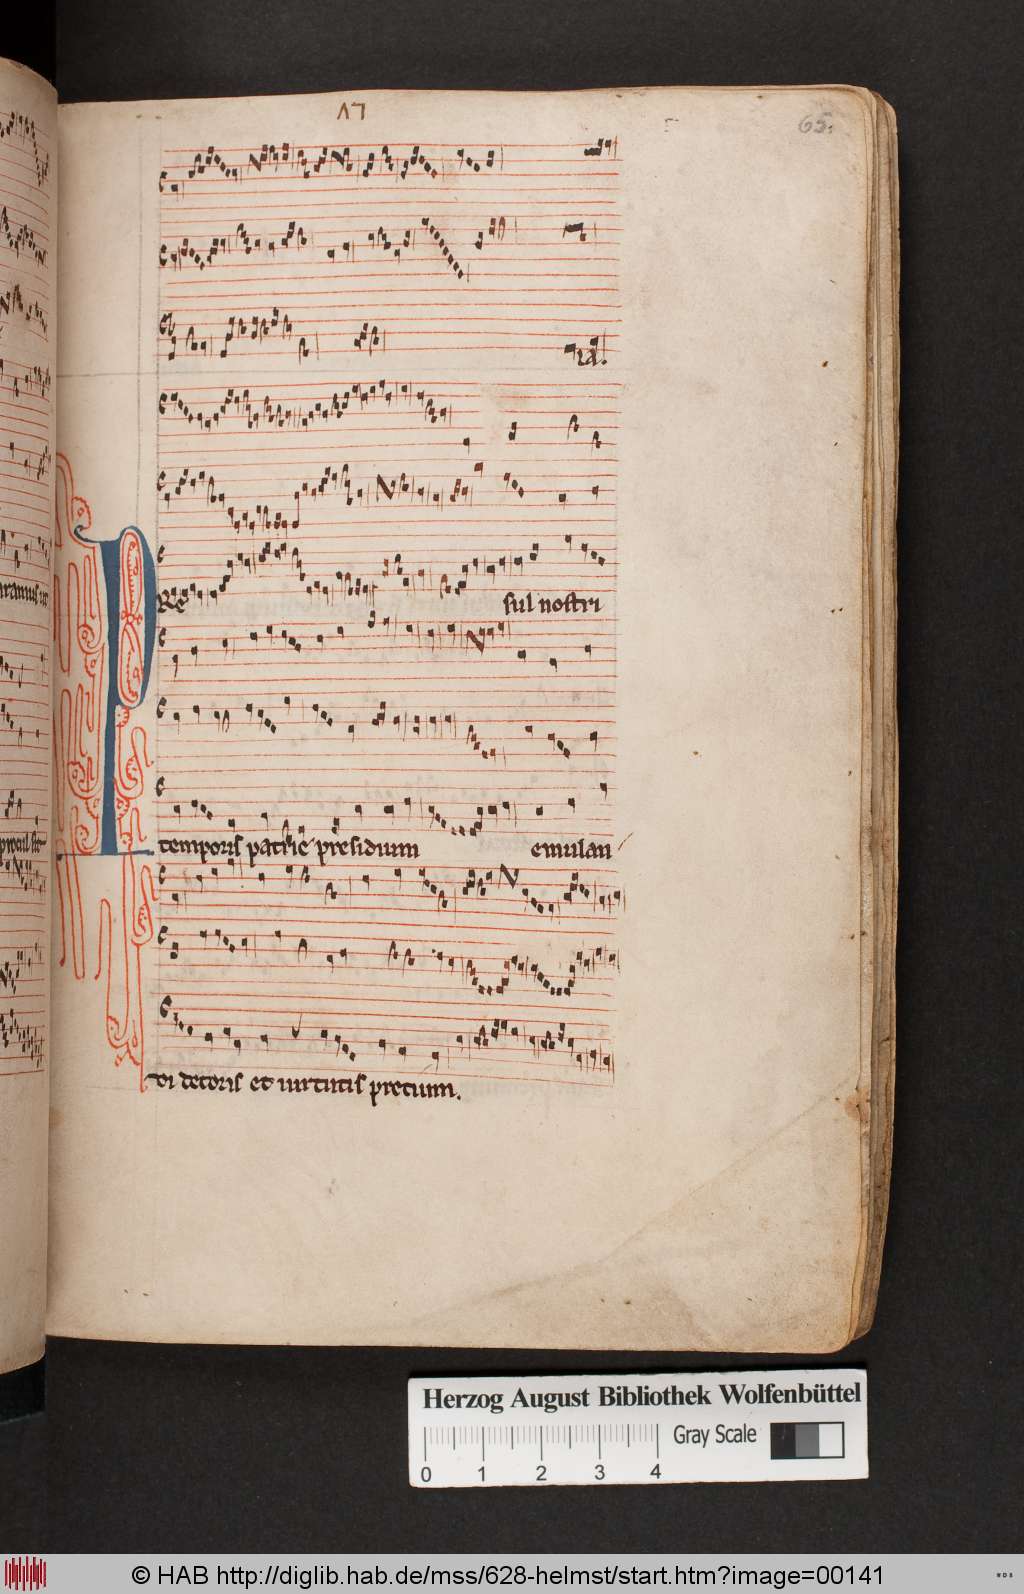 65.
ia.
PRe sul nostri
temporis patrie presidium emulan
di decoris et uirtutis precium.
Herzog August Bibliothek Wolfenbüttel
Gray Scale
0 1 2 3 4
© HAB http://diglib.hab.de/mss/628-helmst/start.htm?image=00141